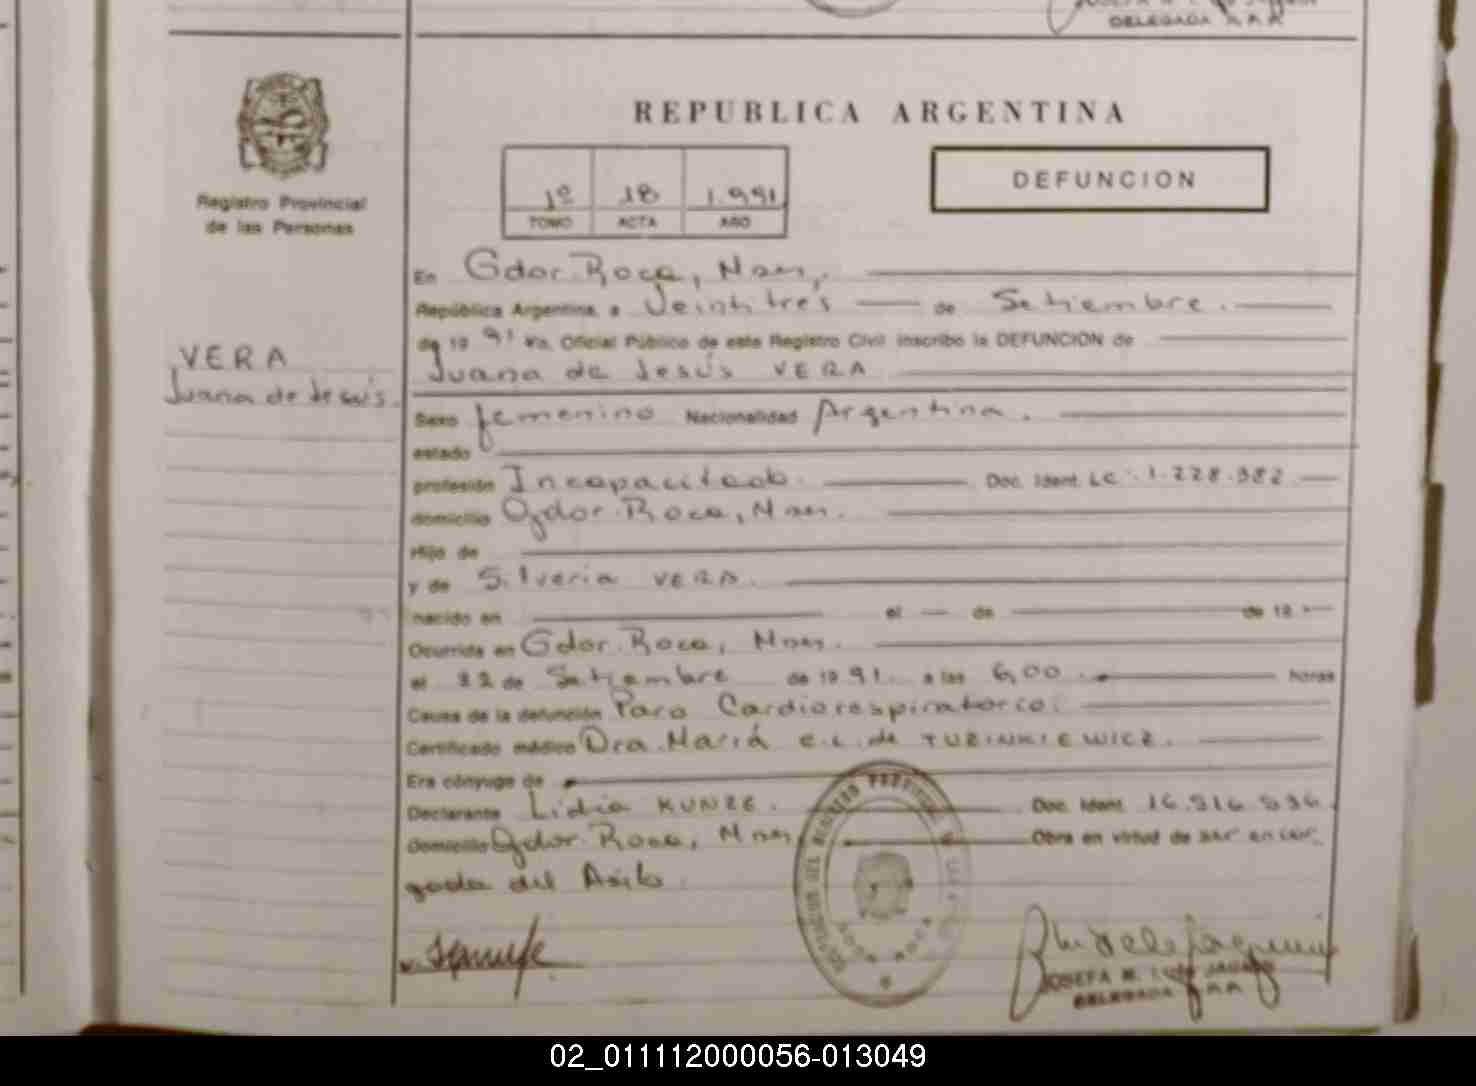 DELEGADA
REPUBLICA ARGENTINA
DEFUNCION
1º 18 1.991
TOMO ACTA AÑO
Registro Provincial
de las Personas
VERA
Juana de Jesús.
En Gdor. Roca, Mnes.
República Argentina, a Veintitres de Setiembre.
de 19 91 Yo, Oficial Público de este Registro Civil inscribo la DEFUNCION de
Juana de Jesús VERA
Sexo femenino Nacionalidad Argentina.
estado
profesión Incapacitado. Doc. Ident. LC. 1.228.382
domicilio Gdor. Roca, Mnes.
Hijo de
y de Silveria VERA.
nacido en el de de 19
Ocurrida en Gdor. Roca, Mnes.
el 22 de Setiembre de 19 91. a las 6,00. horas
Causa de la defunción Paro Cardiorespiratorio.
Certificado médico Dra. María e.c. de
Era cónyuge de
Declarante Lidia KUNZE. Doc. Ident. 16.516.536
Domicilio Gdor. Roca, Mnes. Obra en virtud de ser encar
gada del Asilo.
JOSEFA M.
DELEGADA
02_011112000056-013049